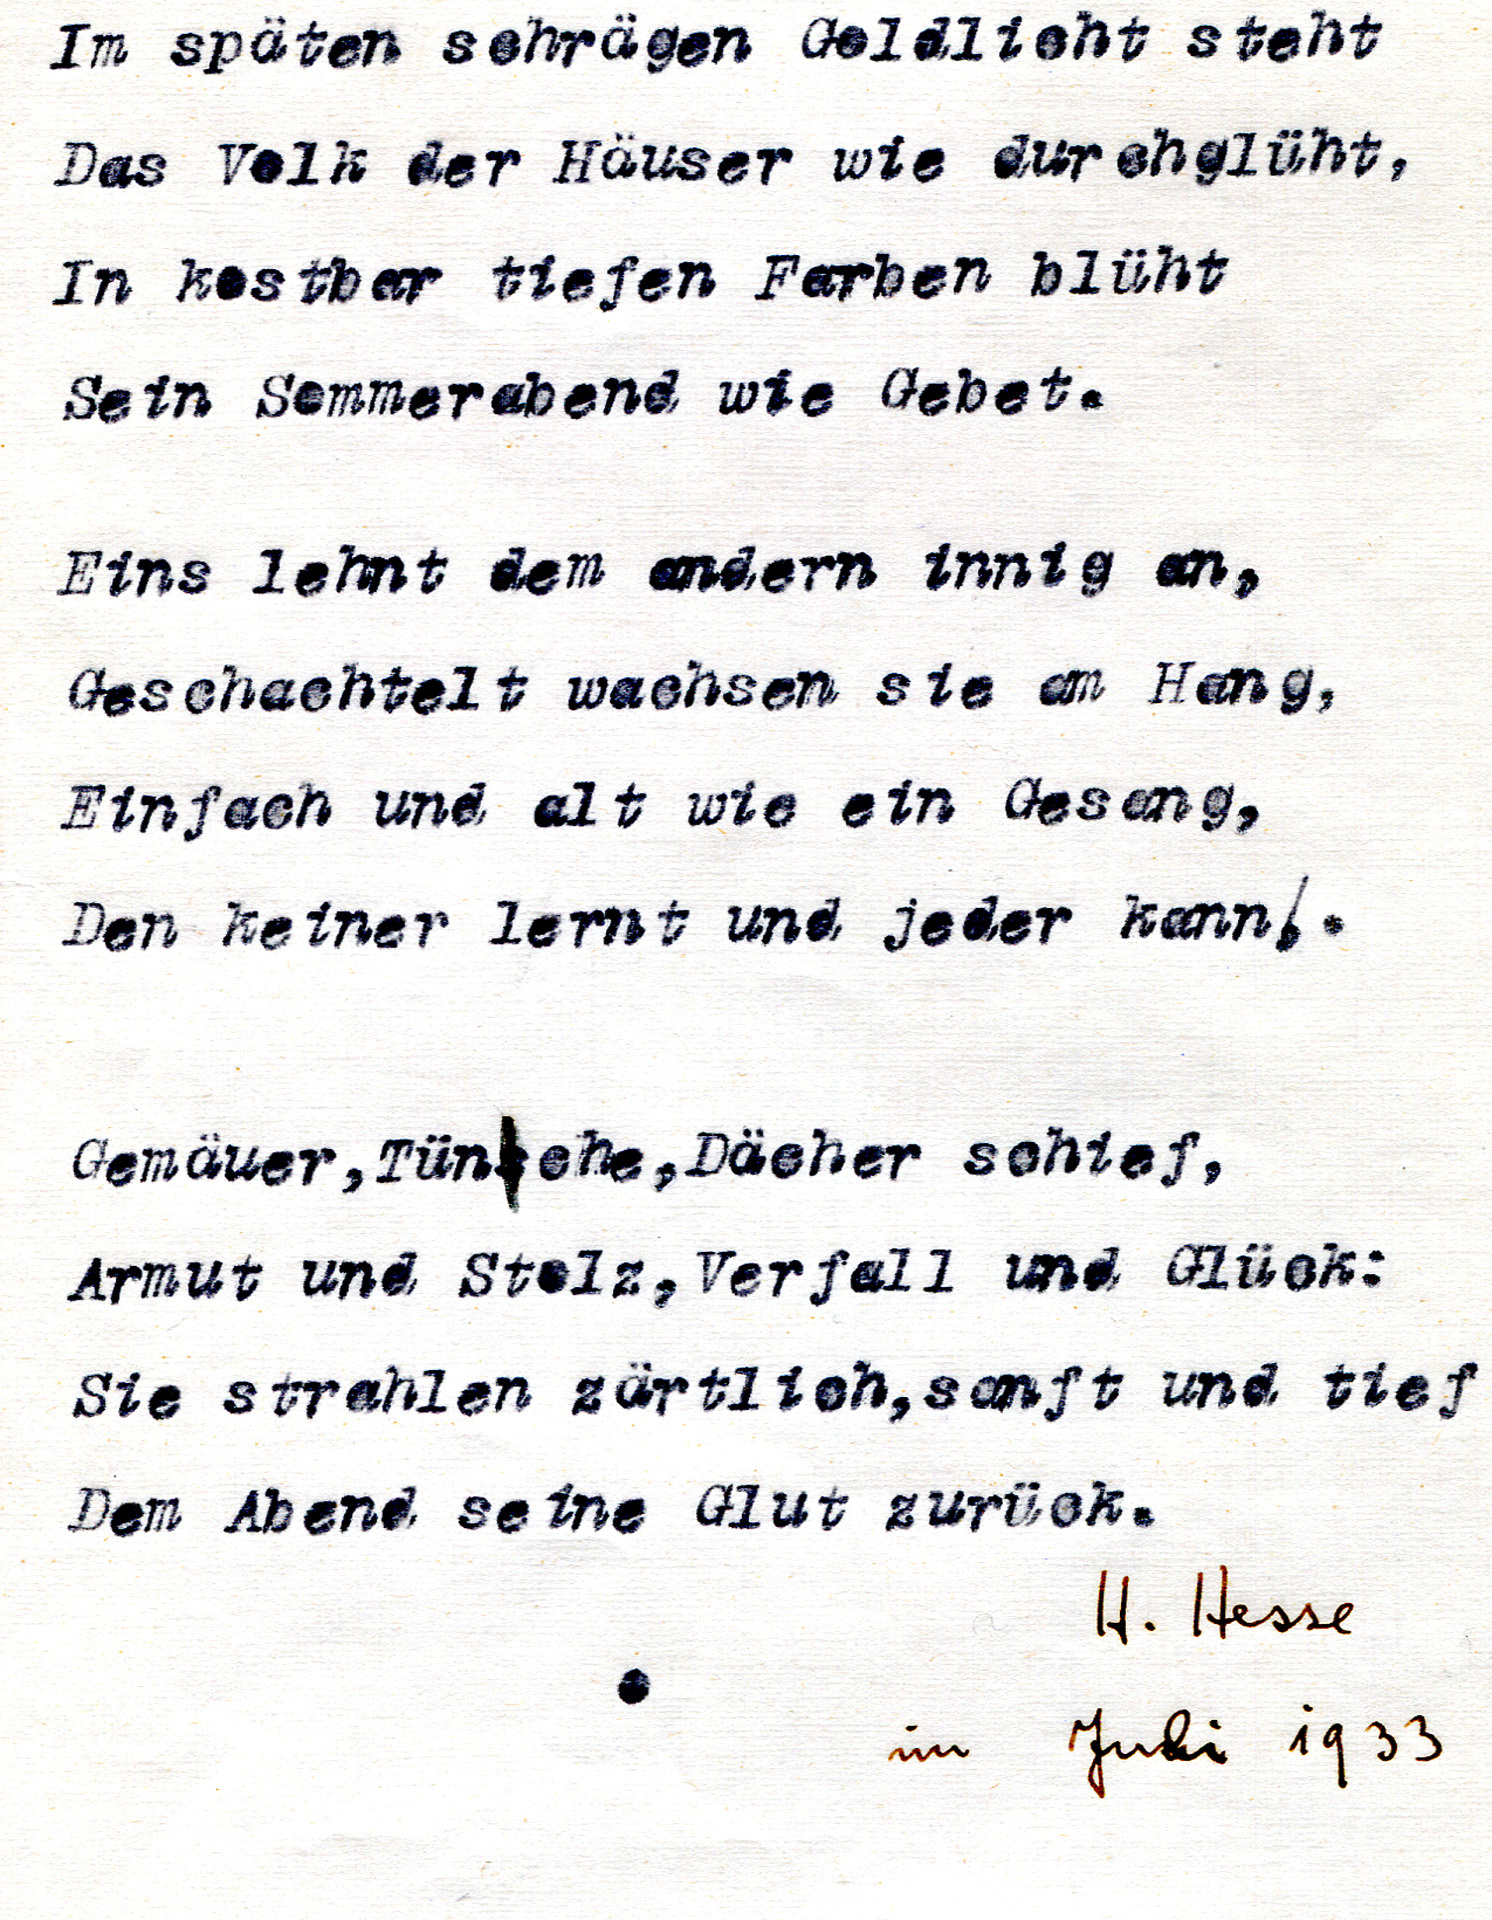 Im späten schrägen Goldlicht steht
Das Volk der Häuser wie durchglüht,
In kostbar tiefen Farben blüht
Sein Sommerabend wie Gebet.
Eins lehnt dem andern innig an,
Geschachtelt wachsen sie am Hang,
Einfach und alt wie ein Gesang,
Den keiner lernt und jeder kann.
Gemäuer,Tünche,Dächer schief,
Armut und Stolz,Verfall und Glück:
Sie strahlen zärtlich,sanft und tief
Dem Abend seine Glut zurück.
H. Hesse
im Juli 1933